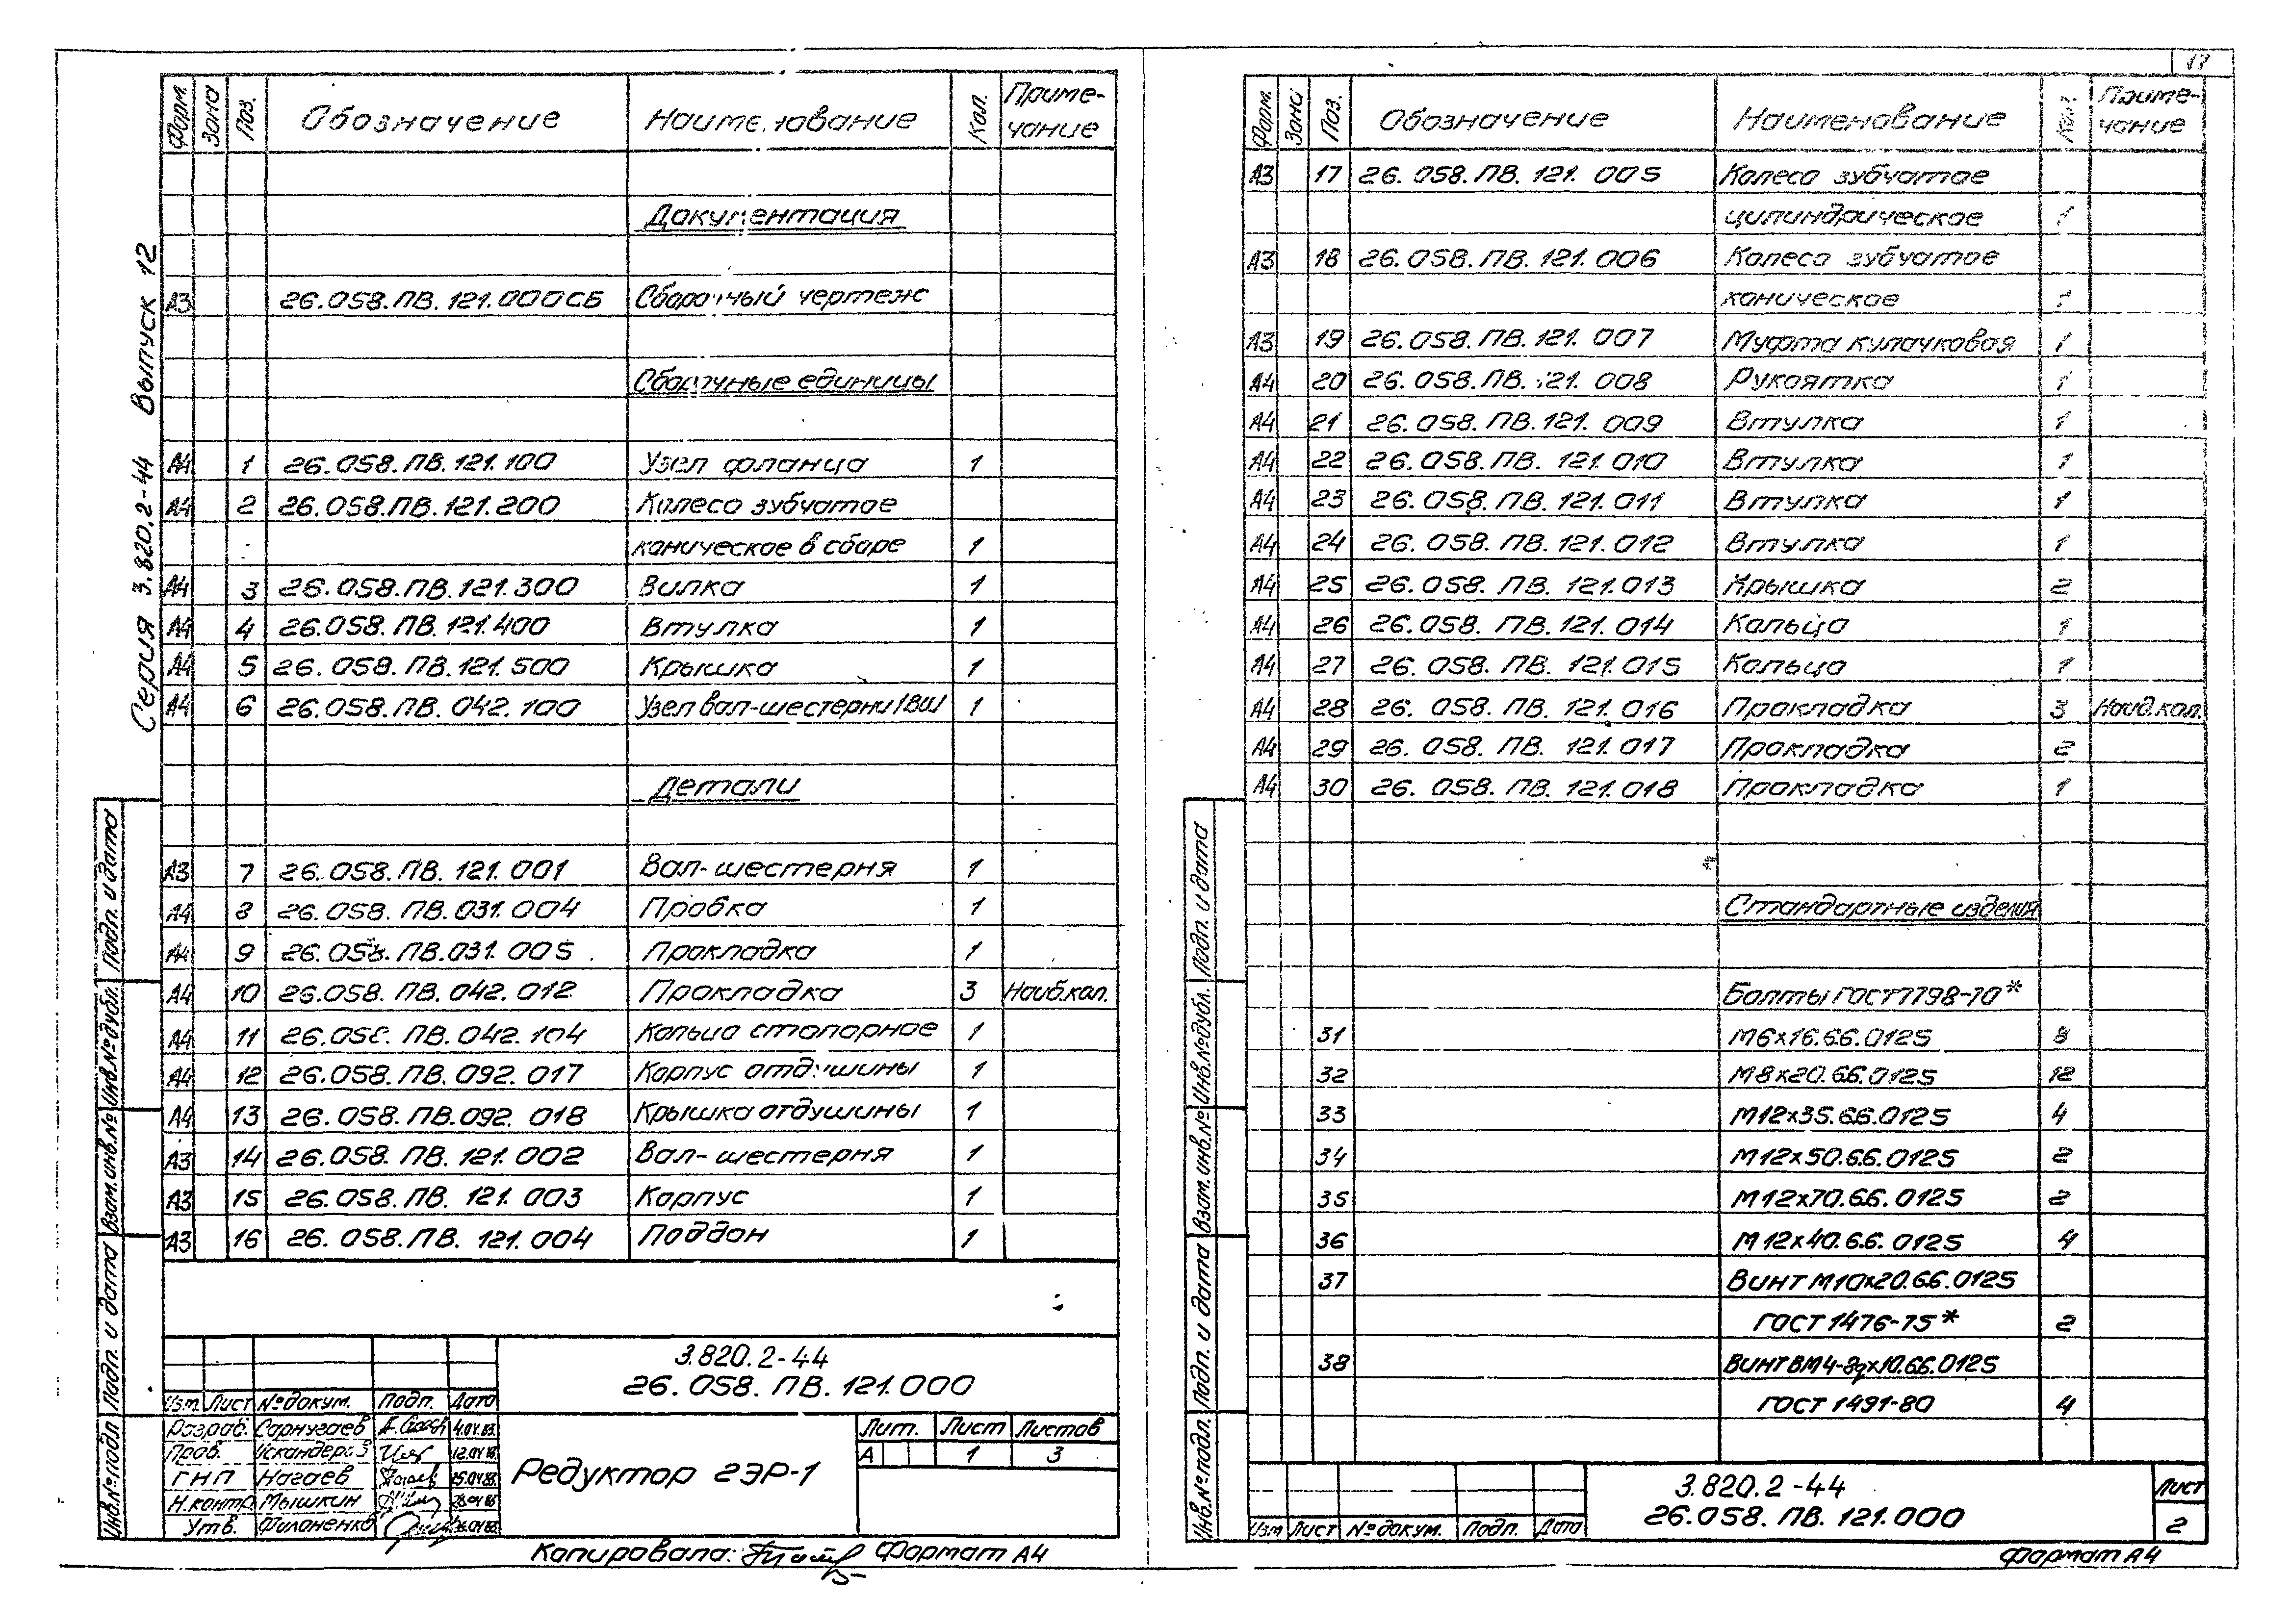 17
Серия 3.820.2-44 Выпуск 12
Форм. Зона Поз. Обозначение Наименование Кол. Приме-
чание
Документация
А3 26.058.ПВ.121.000СБ Сборочный чертеж
Сборочные единицы
А4 1 26.058.ПВ.121.100 Узел фланца 1
А4 2 26.058.ПВ.121.200 Колесо зубчатое
коническое в сборе 1
А4 3 26.058.ПВ.121.300 Вилка 1
А4 4 26.058.ПВ.121.400 Втулка 1
А4 5 26.058.ПВ.121.500 Крышка 1
А4 6 26.058.ПВ.042.100 Узел вал-шестерни 1
Детали
А3 7 26.058.ПВ.121.001 Вал-шестерня 1
А4 8 26.058.ПВ.031.004 Пробка 1
А4 9 26.058.ПВ.031.005 Прокладка 1
А4 10 26.058.ПВ.042.012 Прокладка 3 Наиб.кол.
А4 11 26.058.ПВ.042.104 Кольцо стопорное 1
А4 12 26.058.ПВ.092.017 Корпус отдушины 1
А4 13 26.058.ПВ.092.018 Крышка отдушины 1
А3 14 26.058.ПВ.121.002 Вал-шестерня 1
А3 15 26.058.ПВ.121.003 Корпус 1
А3 16 26.058.ПВ.121.004 Поддон 1
Инв.№подл Подп. и дата Взам.инв.№ Инв.№дубл. Подп. и дата
3.820.2-44
26.058.ПВ.121.000
Изм Лист №докум. Подп. Дата
Разраб. Сарнугаев 4.04.83
Пров.
ГНП Нагаев
Н.контр Мышкин
Утв. Филоненко
Редуктор 2ЭР-1
Лит. Лист Листов
А 1 3
Копировала: Формат А4
Форм. Зона Поз. Обозначение Наименование Кол. Приме-
чание
А3 17 26.058.ПВ.121.005 Колесо зубчатое
цилиндрическое 1
А3 18 26.058.ПВ.121.006 Колесо зубчатое
коническое 1
А3 19 26.058.ПВ.121.007 Муфта кулачковая 1
А4 20 26.058.ПВ.121.008 Рукоятка 1
А4 21 26.058.ПВ.121.009 Втулка 1
А4 22 26.058.ПВ.121.010 Втулка 1
А4 23 26.058.ПВ.121.011 Втулка 1
А4 24 26.058.ПВ.121.012 Втулка 1
А4 25 26.058.ПВ.121.013 Крышка 2
А4 26 26.058.ПВ.121.014 Кольцо 1
А4 27 26.058.ПВ.121.015 Кольцо 1
А4 28 26.058.ПВ.121.016 Прокладка 3 Наиб.кол.
А4 29 26.058.ПВ.121.017 Прокладка 2
А4 30 26.058.ПВ.121.018 Прокладка 1
Стандартные изделия
Болты ГОСТ7798-70*
31 М6х16.66.0125 8
32 М8х20.66.0125 12
33 М12х35.66.0125 4
34 М12х50.6.6.0125 2
35 М12х70.66.0125 2
36 М12х40.6.6.0125 4
37 Винт М10х20.66.0125
ГОСТ 1476-75* 2
38 Винт ВМ4-8gх10.66.0125
ГОСТ 1491-80 4
Инв.№подл. Подп. и дата Взам.инв.№ Инв.№дубл. Подп. и дата
Изм Лист №докум. Подп. Дата
3.820.2-44
26.058.ПВ.121.000
Лист
2
Формат А4